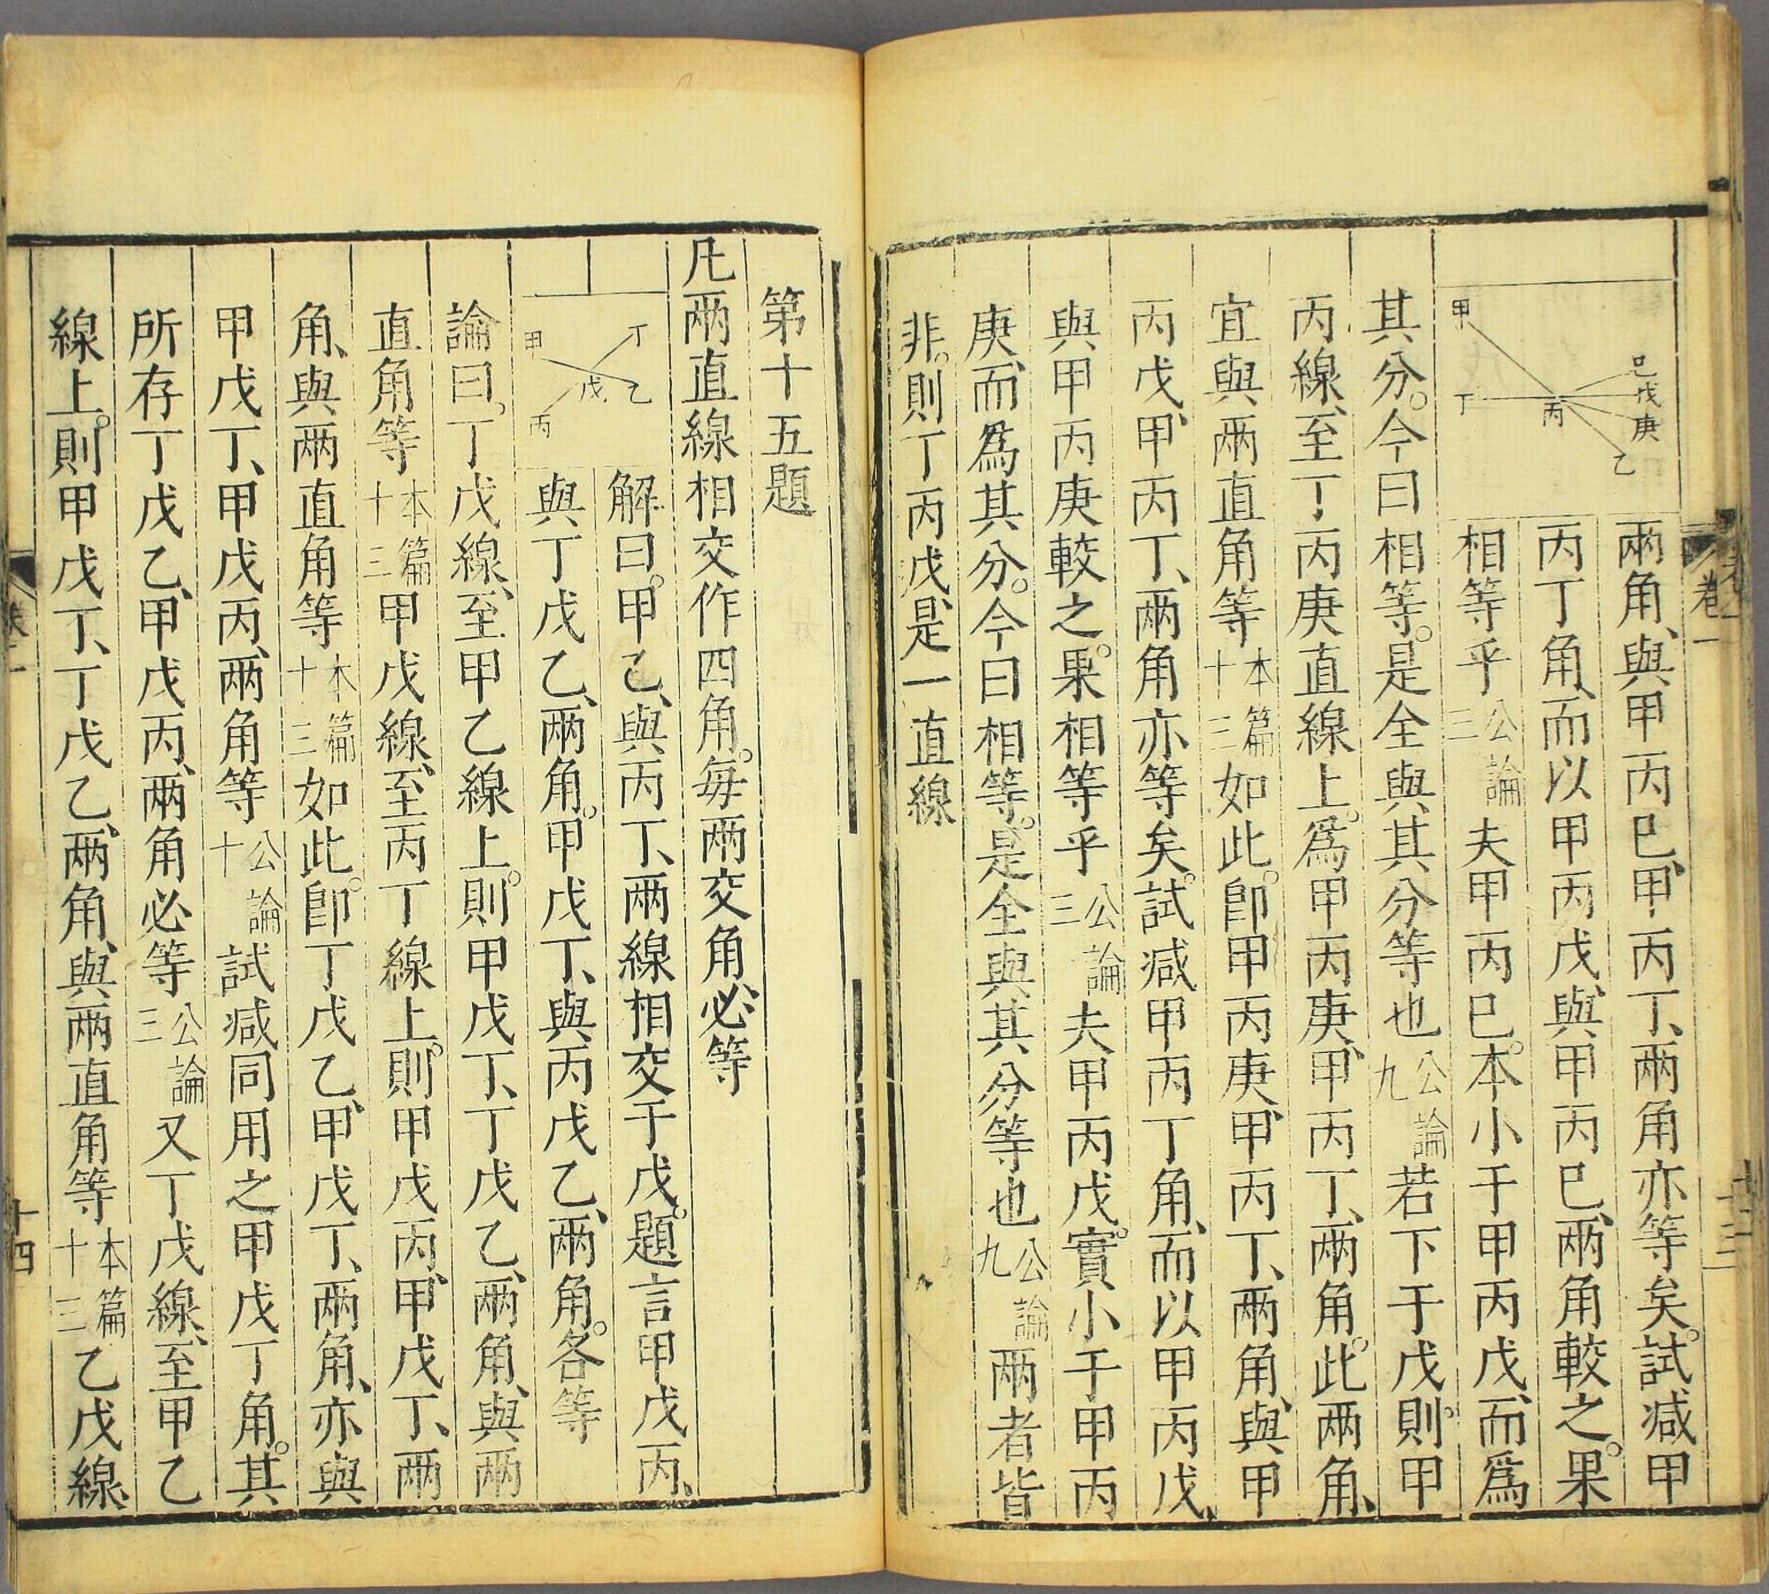 甲
丁
丙
巳
戊
庚
乙
兩角、與甲丙巳、甲丙丁、兩角亦等矣。試减甲
丙丁角、而以甲丙戊、與甲丙巳、兩角較之。果
相等乎公論三夫甲丙巳。本小于甲丙戊、而爲
其分。今曰相等。是全與其分等也公論九若下于戊。則甲
丙線、至丁丙庚直線上。爲甲丙庚、甲丙丁、兩角。此兩角、
宜與兩直角等本篇十三如此。卽甲丙庚、甲丙丁、兩角、與甲
丙戊、甲丙丁、兩角亦等矣。試减甲丙丁角、而以甲丙戊、
與甲丙庚較之。果相等乎公論三夫甲丙戊。實小于甲丙
庚、而爲其分。今曰相等。是全與其分等也公論九兩者皆
非。則丁丙戊、是一直線
卷一
十三
第十五題
凡兩直線相交作四角。每兩交角、必等
甲
丁
戊
乙
丙
解曰。甲乙、與丙丁、兩線相交于戊。題言甲戊丙、
與丁戊乙、兩角。甲戊丁、與丙戊乙、兩角。各等
論曰。丁戊線、至甲乙線上。則甲戊丁、丁戊乙、兩角、與兩
直角等本篇十三甲戊線、至丙丁線上。則甲戊丙、甲戊丁、兩
角、與兩直角等本篇十三如此。卽丁戊乙、甲戊丁、兩角、亦與
甲戊丁、甲戊丙、兩角等公論十試减同用之甲戊丁角。其
所存丁戊乙、甲戊丙、兩角必等公論三又丁戊線、至甲乙
線上。則甲戊丁、丁戊乙、兩角、與兩直角等本篇十三乙戊線
十四